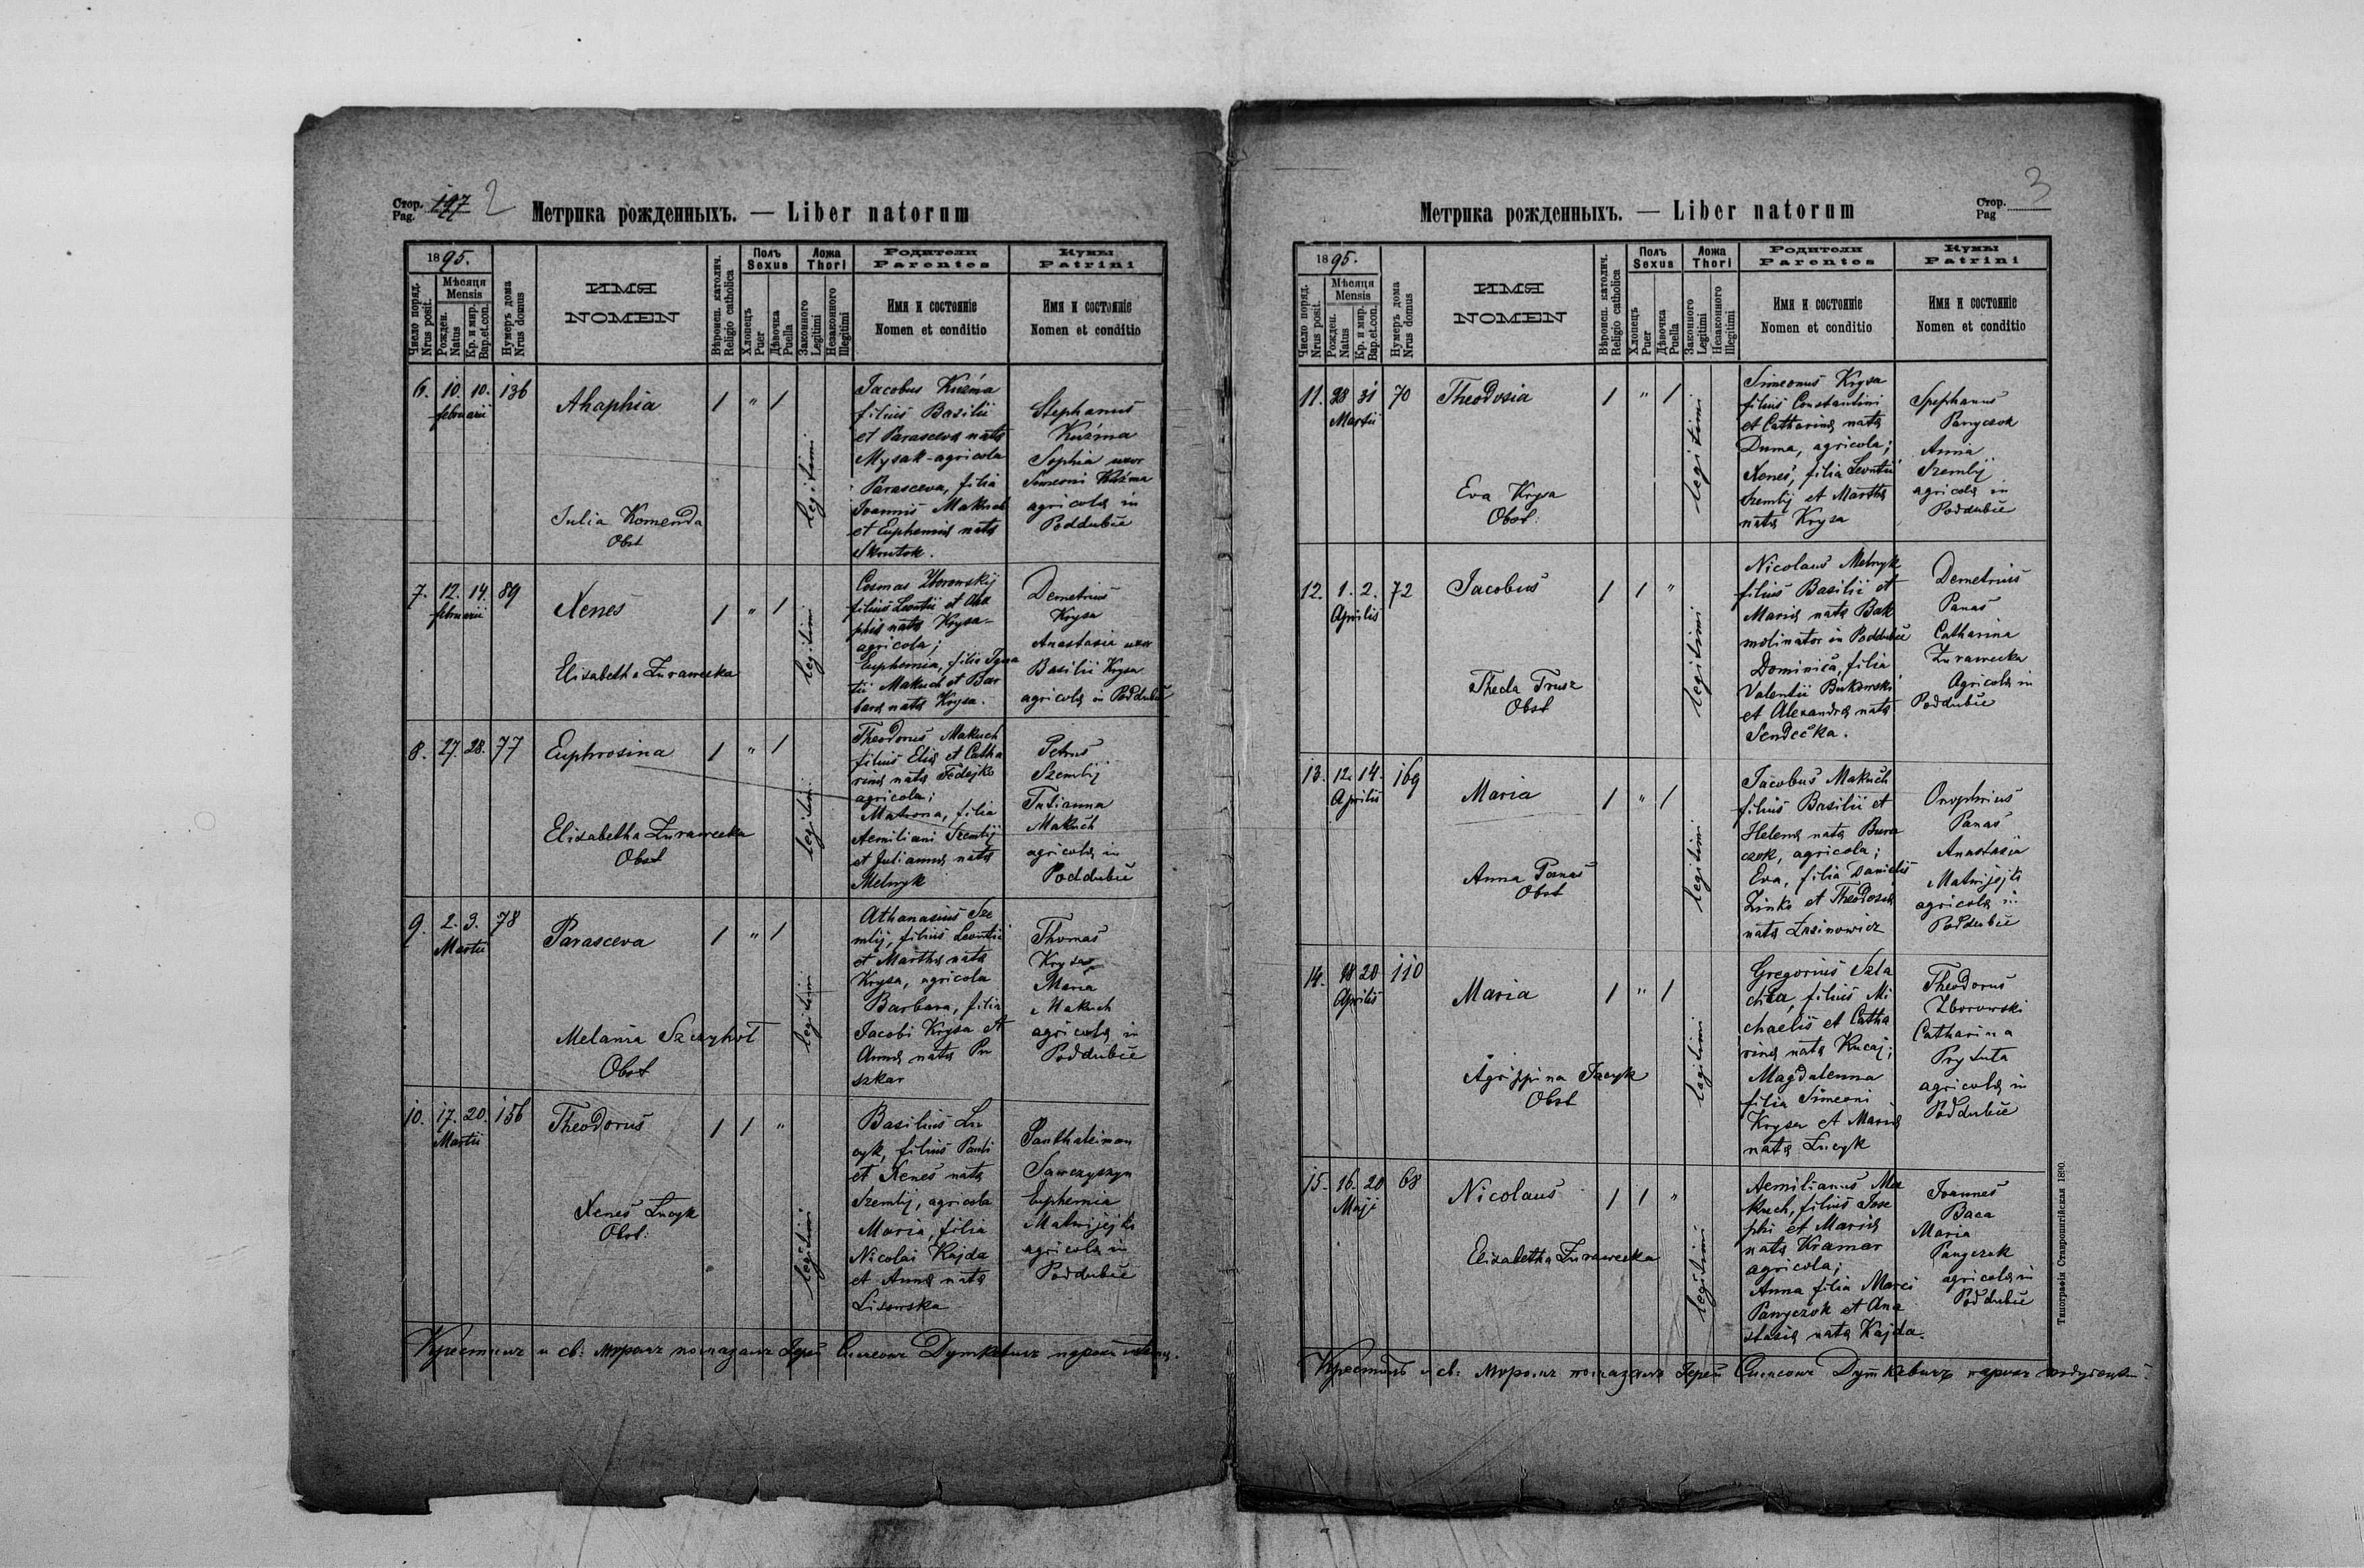 Стор. Pag. 197 2
Метрика рожденныхъ. — Liber natorum
1895.
Число поряд. Nrus posit.
Мѣсяця Mensis
Рожден. Natus
Кр. и мир. Bap. et con.
Нумеръ дома Nrus domus
ИМЯ
NOMEN
Вѣроисп. католич. Religio catholica
Полъ Sexus
Хлопецъ Puer
Дѣвочка Puella
Ложа Thori
Законного Legitimi
Незаконного Illegitimi
Родители
Parentes
Имя и состояніе
Nomen et conditio
Кумы
Patrini
Имя и состояніе
Nomen et conditio
6. 10. 10. 136
februarii
Ahaphia
1 " 1
legitimi
Julia Komenda
Obst
Jacobus Kuźma
filius Basilii
et Parasceva nata
Mysak - agricola
Parasceva, filia
Joannis Makuch
et Euphemia nata
Stephanus
Kuźma
Sophia uxor
Simeoni Kuźma
agricola in
Poddubie
7. 12. 14. 89
februarii
Xenes
1 " 1
legitimi
Elisabetha Zurawecka
Cosmas Zborowskij
filius Leontii et Aha
phia nata Krysa -
agricola;
Euphemia, filia Igna
tii Makuch et Bar
bara nata Krysa.
Demetrius
Krysa
Anastasia uxor
Basilii Krysa
agricola in Poddubie
8. 27. 28. 77
Euphrosina
1 " 1
legitimi
Elisabetha Zurawecka
Obst
Theodorus Makuch
filius Elia et Catha
rina nata Fedejko
agricola;
Matrona, filia
Aemiliani Szemlij
et Julianna nata
Melnyk
Petrus
Szemlij
Tatianna
Makuch
agricola in
Poddubie
9. 2. 3. 78
Martii
Parasceva
1 " 1
legitimi
Melania
Obst
Athanasius Sze
mlij, filius Leontii
et Martha nata
Krysa, agricola
Barbara, filia
Jacobi Krysa et
Anna nata Pu
szkar
Thomas
Krysa
Maria
Makuch
agricola in
Poddubie
10. 17. 20. 156
Martii
Theodorus
1 1 "
legitimi
Xenes Łucyk
Obst:
Basilius Łu
cyk, filius Pauli
et Xenes nata
Szemlij, agricola
Maria, filia
Nicolai Kajda
et Anna nata
Lisowska
Panthaleimon
Sawczyszyn
Euphemia
Matwijejko
agricola in
Poddubie
Крестилъ и св: мѵромъ помазалъ Іерей Симеонъ Дуткевичъ парохъ
Метрика рожденныхъ. — Liber natorum
Стор. Pag 3
1895.
Число поряд. Nrus posit.
Мѣсяця Mensis
Рожден. Natus
Кр. и мир. Bap. et con.
Нумеръ дома Nrus domus
ИМЯ
NOMEN
Вѣроисп. католич. Religio catholica
Полъ Sexus
Хлопецъ Puer
Дѣвочка Puella
Ложа Thori
Законного Legitimi
Незаконного Illegitimi
Родители
Parentes
Имя и состояніе
Nomen et conditio
Кумы
Patrini
Имя и состояніе
Nomen et conditio
11. 28 31 70
Martii
Theodosia
1 " 1
legitimi
Eva Krysa
Obst:
Simeonus Krysa
filius Constantini
et Catharina nata
Duma, agricola;
Xenes, filia Leontii
Szemlij et Martha
nata Krysa
Spephanus
Panyczok
Anna
Szemlij
agricola in
Poddubie
12. 1. 2. 72
Aprilis
Jacobus
1 1 "
legitimi
Thecla Trusz
Obst
Nicolaus Melnyk
filius Basilii et
Maria nata Bak
molinator in Poddubie
Dominica, filia
Valentii Bukowski
et Alexandra nata
Sendecka.
Demetrius
Panas
Catharina
Zurawecka
Agricola in
Poddubie
13. 12. 14. 169
Aprilis
Maria
1 " 1
legitimi
Anna Panas
Obst
Jacobus Makuch
filius Basilii et
Helena nata Bura
czok, agricola;
Eva, filia Danielis
Zinko et Theodosia
nata
Onophrius
Panas
Anastasia
Matwijejko
agricola in
Poddubie
14. 18 20 110
Aprilis
Maria
1 " 1
legitimi
Agrippina Jacyk
Obst
Gregorius Szla
chta, filius Mi
chaelis et Catha
rina nata Kucaj;
Magdalenna
filia Simeoni
Krysa et Maria
nata Łucyk
Theodorus
Zborowski
Catharina
Pryтuła
agricola in
Poddubie
15. 16. 20 68
Maji
Nicolaus
1 1 "
legitimi
Elisabetha Zurawecka
Aemilianus Ma
kuch, filius Jose
phi et Maria
nata Kramar
agricola;
Anna filia Marci
Panyczok et Ana
stasia nata Kajda.
Joannes
Baca
Maria
Panyczok
agricola in
Poddubie
Крестилъ и св: мѵромъ помазалъ Іерей Симеонъ Дуткевичъ парохъ
Типографія Ставропигійская 1890.